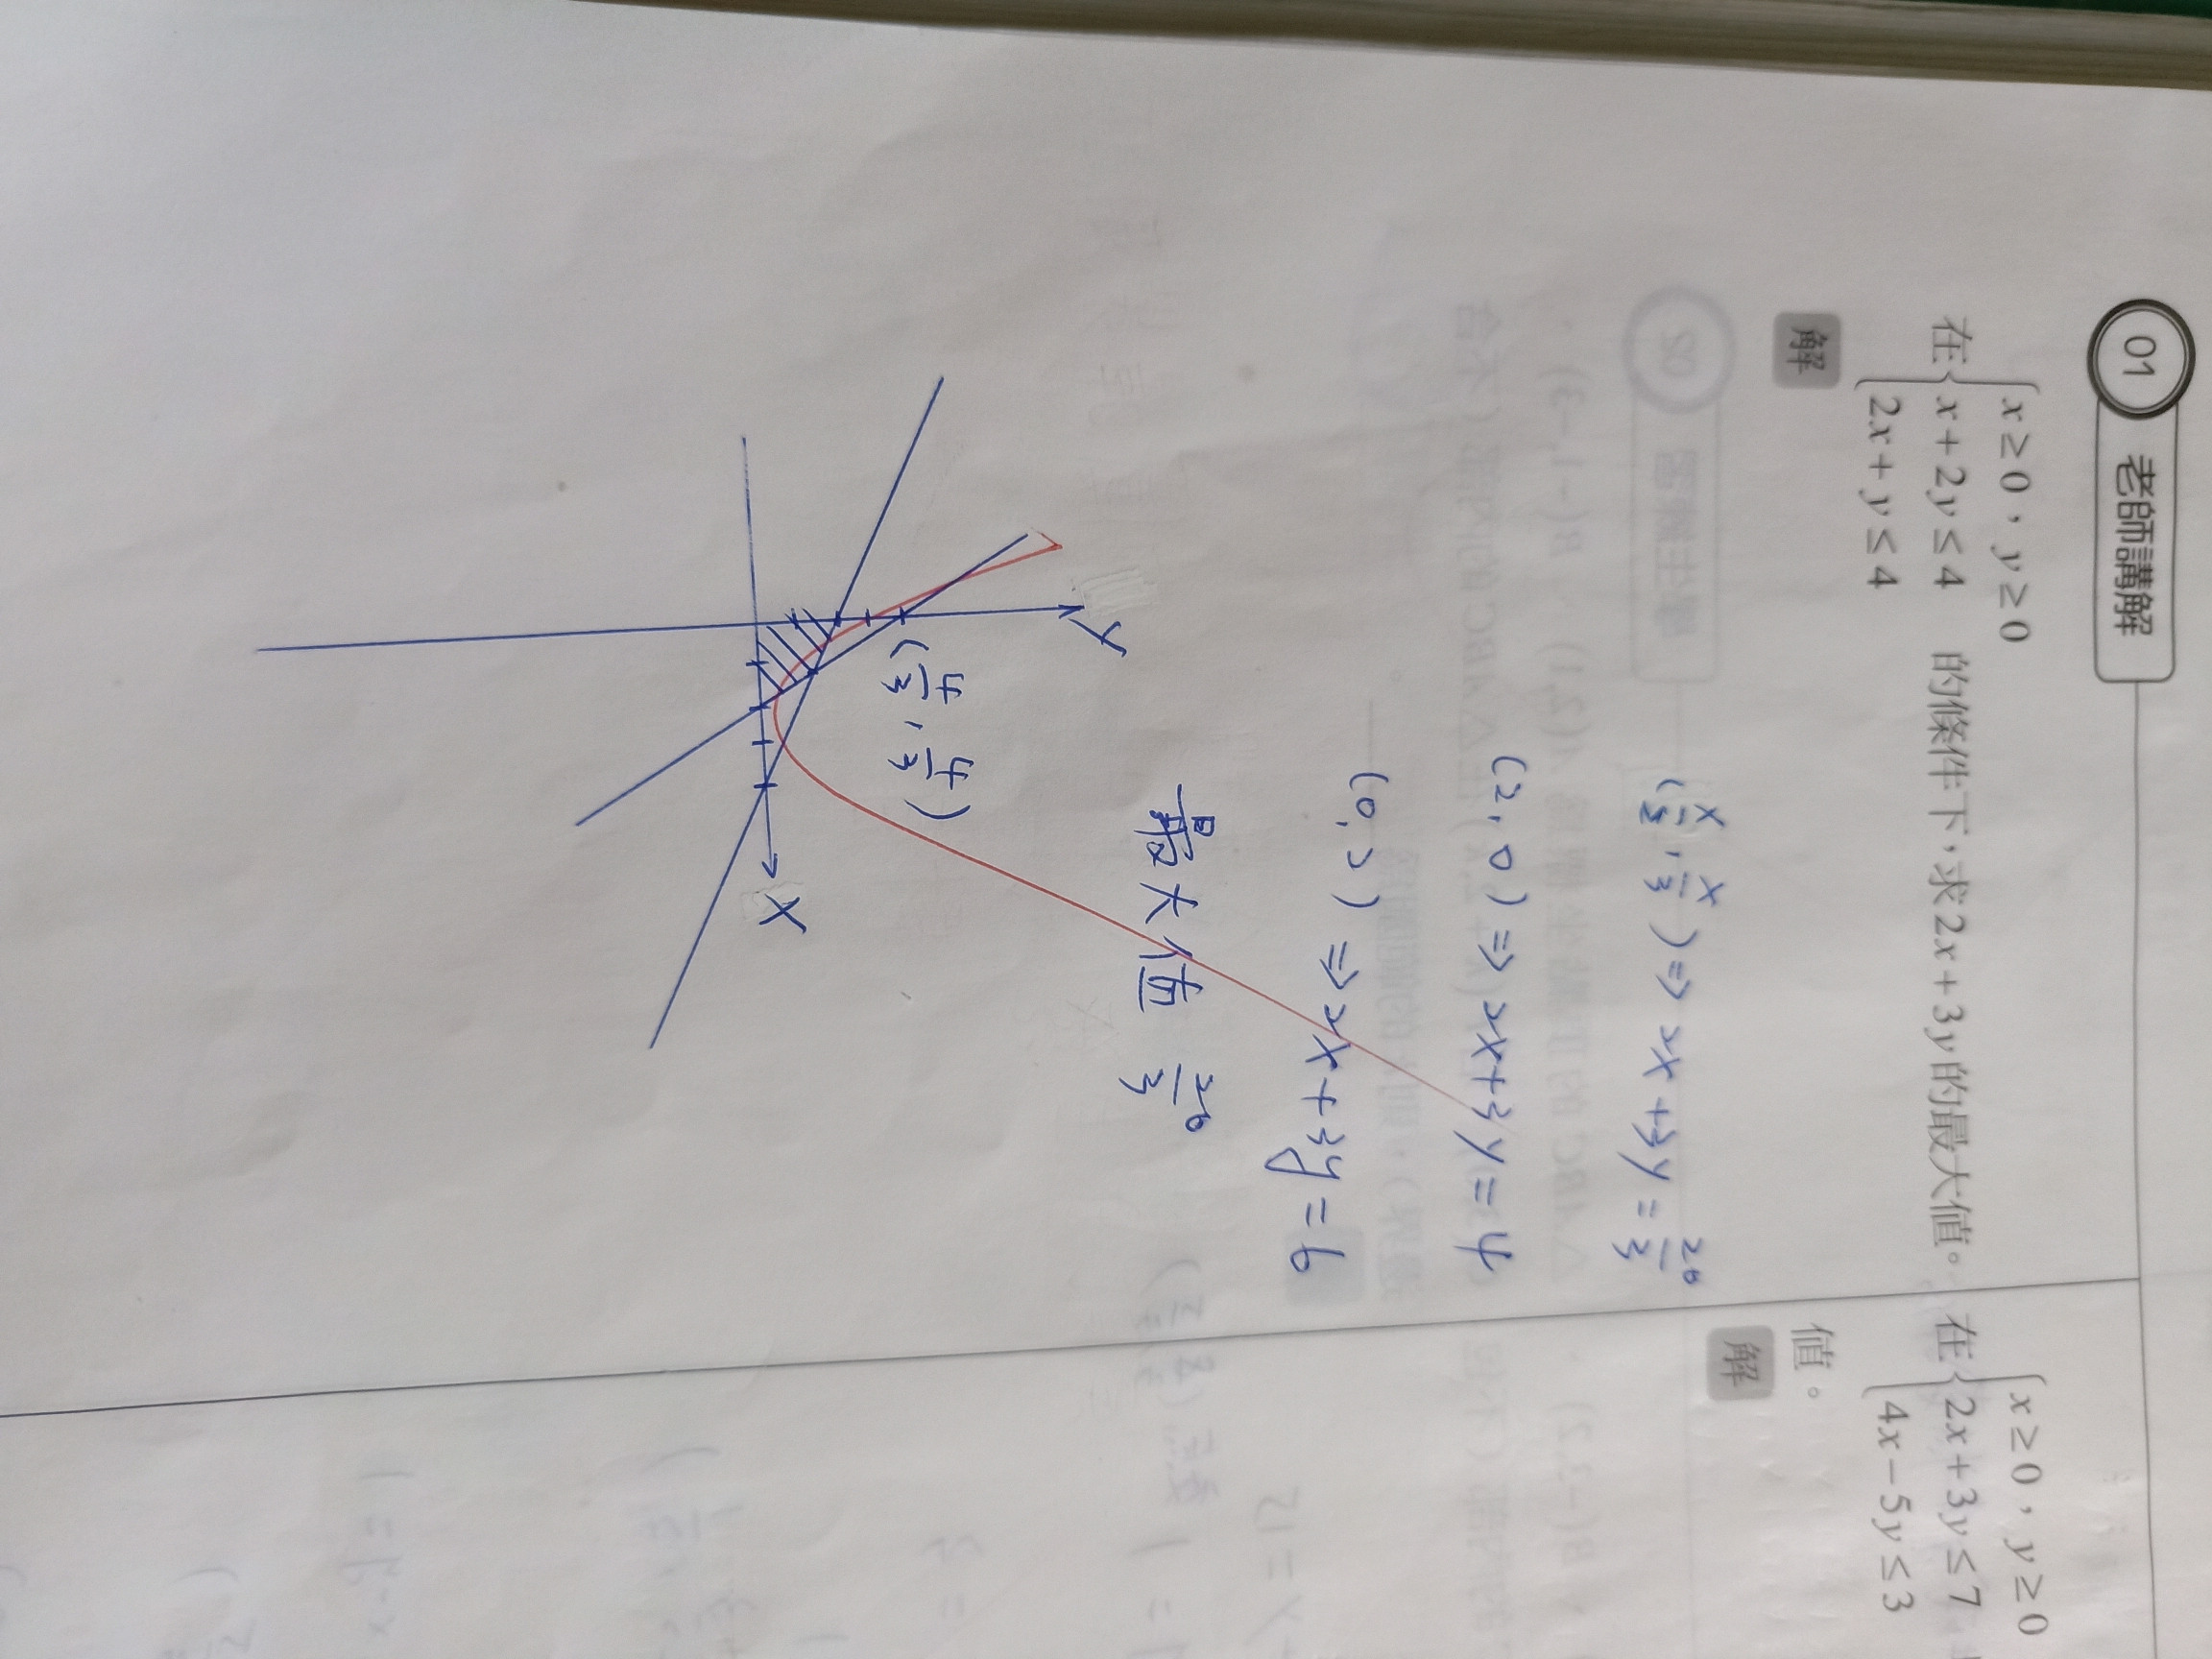 01 老師講解
在{x≥0，y≥0
x+2y≤4
2x+y≤4 的條件下，求2x+3y的最大值。
解
(4/3, 4/3) ⇒ 2x+3y = 20/3
(2, 0) ⇒ 2x+3y = 4
(0, 2) ⇒ 2x+3y = 6
最大值 20/3
y
(4/3, 4/3)
x
在{x≥0，y≥0
2x+3y≤7
4x−5y≤3
值。
解